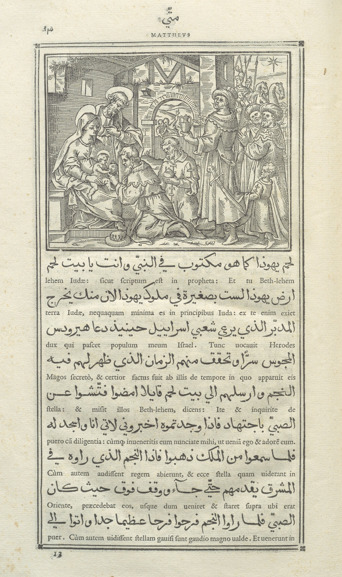 متّى
MATTHEVS
لحم يهودا كما هو مكتوب في النبي وانت يا بيت لحم
lehem Iudæ: sicut scriptum est in propheta: Et tu Beth-lehem
ارض يهودا لست بصغيرة في ملوك يهودا لان منك يخرج
terra Iudæ, nequaquam minima es in principibus Iuda: ex te enim exiet
المدبّر الذي يرعي شعبي اسراييل حينيذ دعا هيرودس
dux qui pascet populum meum Israel. Tunc vocauit Herodes
المجوس سرّا وتحقف منهم الزمان الذي ظهر لهم فيه
Magos secretò, & certior factus fuit ab illis de tempore in quo apparuit eis
النجم وارسلهم الي بيت لحم قايلا امضوا فتّشوا عن
stella: & misit illos Beth-lehem, dicens: Ite & inquirite de
الصبيّ باجتهاد فاذا وجدتموه اخبروني لاتي انا واسجد له
puero cū diligentia: cùmq; inueneritis eum nunciate mihi, ut ueniā ego & adorē eum.
فلما سمعوا من الملك ذهبوا فاذا النجم الذي راوه في
Cùm autem audissent regem abierunt, & ecce stella quam uiderant in
المشرق يقدمهم حتّي جاء ووقف فوق حيث كان
Oriente, præcedebat eos, usque dum ueniret & staret supra ubi erat
الصبيّ فلما راوا النجم فرحوا فرحا عظيما جدا واتوا الي
puer. Cùm autem uidissent stellam gauisi sunt gaudio magno ualde. Et uenerunt in
13